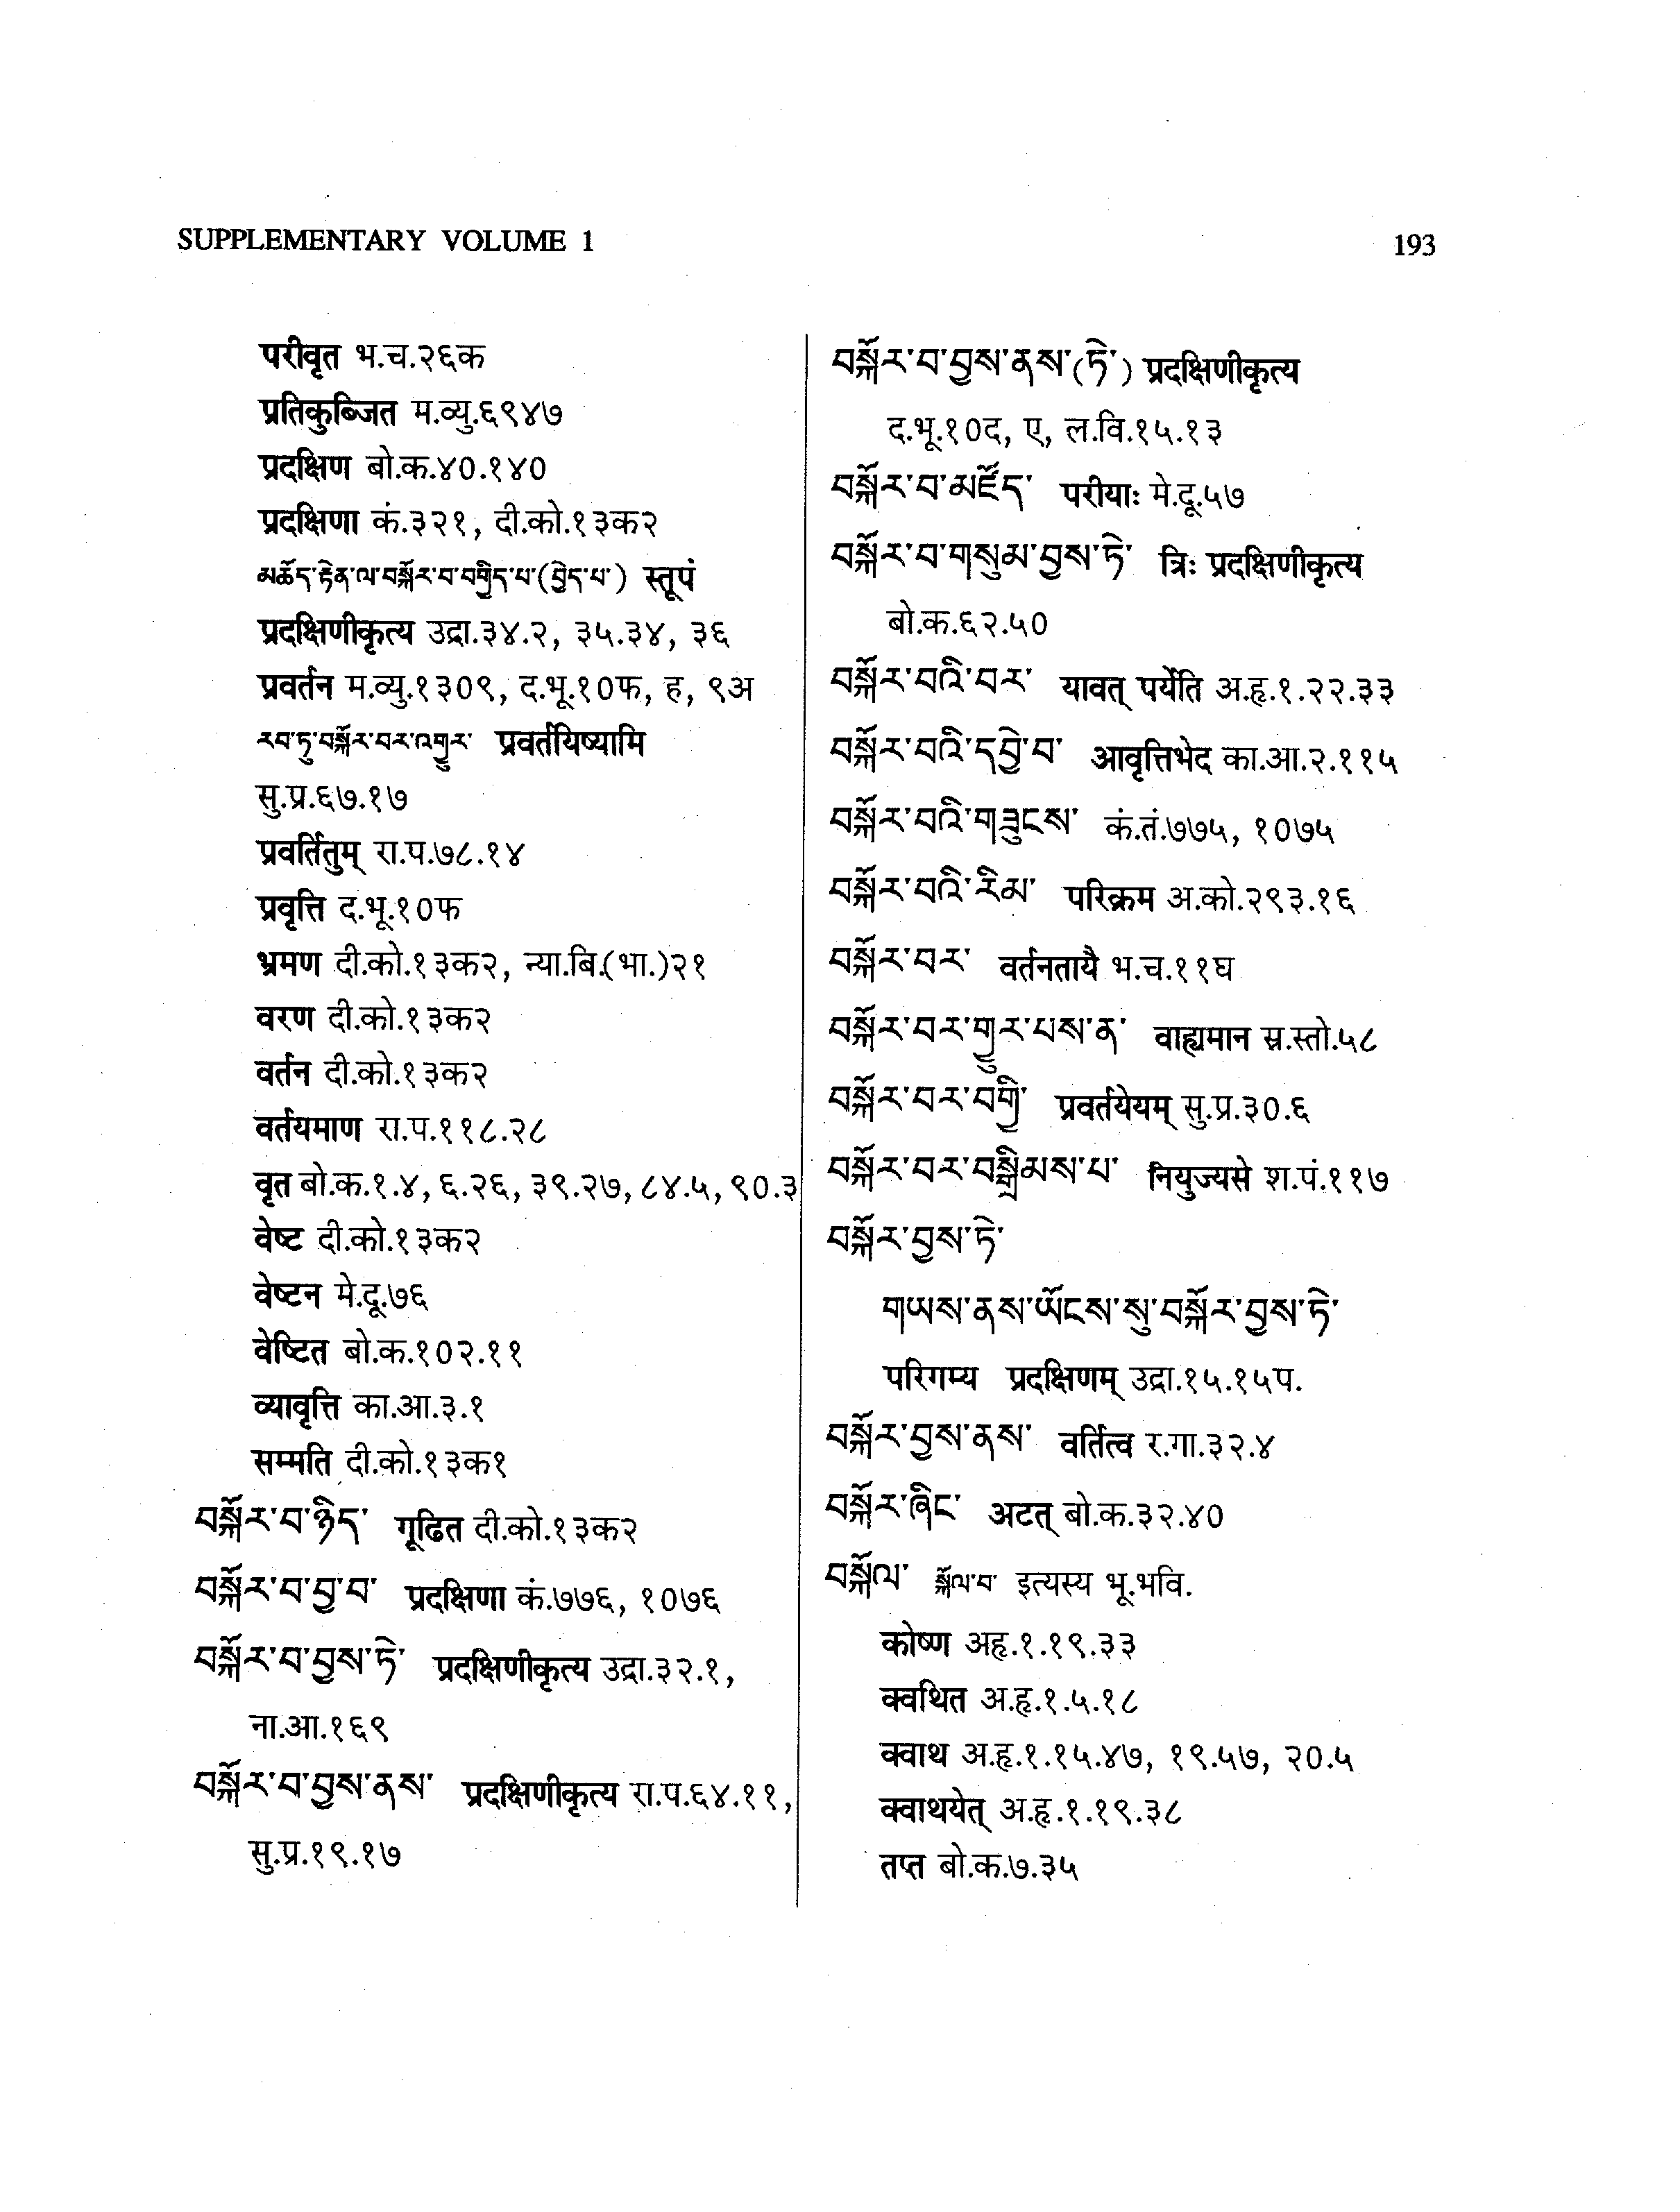 SUPPLEMENTARY VOLUME 1
193
परीवृत भ.च.२६क
प्रतिकुब्जित म.व्यु.६९४७
प्रदक्षिण बो.क.४०.१४०
प्रदक्षिणा कं.३२१, दी.को.१३क२
མཆོད་རྟེན་ལ་བསྐོར་བ་བགྱིད་པ་(བྱེད་པ་) स्तूपं
प्रदक्षिणीकृत्य उद्रा.३४.२, ३५.३४, ३६
प्रवर्तन म.व्यु.१३०९, द.भू.१०फ, ह, ९अ
རབ་ཏུ་བསྐོར་བར་འགྱུར་ प्रवर्तयिष्यामि
सु.प्र.६७.१७
प्रवर्तितुम् रा.प.७८.१४
प्रवृत्ति द.भू.१०फ
भ्रमण दी.को.१३क२, न्या.बि.(भा.)२१
वरण दी.को.१३क२
वर्तन दी.को.१३क२
वर्तयमाण रा.प.११८.२८
वृत बो.क.१.४, ६.२६, ३९.२७, ८४.५, ९०.३
वेष्ट दी.को.१३क२
वेष्टन मे.दू.७६
वेष्टित बो.क.१०२.११
व्यावृत्ति का.आ.३.१
सम्मति दी.को.१३क१
བསྐོར་བ་ཉིད་ गूढित दी.को.१३क२
བསྐོར་བ་བྱ་བ་ प्रदक्षिणा कं.७७६, १०७६
བསྐོར་བ་བྱས་ཏེ་ प्रदक्षिणीकृत्य उद्रा.३२.१,
ना.आ.१६९
བསྐོར་བ་བྱས་ནས་ प्रदक्षिणीकृत्य रा.प.६४.११,
सु.प्र.१९.१७
བསྐོར་བ་བྱས་ནས་(ཏེ་) प्रदक्षिणीकृत्य
द.भू.१०द, ए, ल.वि.१५.१३
བསྐོར་བ་མཛོད་ परीयाः मे.दू.५७
བསྐོར་བ་གསུམ་བྱས་ཏེ་ त्रिः प्रदक्षिणीकृत्य
बो.क.६२.५०
བསྐོར་བའི་བར་ यावत् पर्येति अ.हृ.१.२२.३३
བསྐོར་བའི་དབྱེ་བ་ आवृत्तिभेद का.आ.२.११५
བསྐོར་བའི་གཟུངས་ कं.तं.७७५, १०७५
བསྐོར་བའི་རིམ་ परिक्रम अ.को.२९३.१६
བསྐོར་བར་ वर्तनतायै भ.च.११घ
བསྐོར་བར་གྱུར་པས་ན་ वाह्यमान स्र.स्तो.५८
བསྐོར་བར་བགྱི་ प्रवर्तयेयम् सु.प्र.३०.६
བསྐོར་བར་བསྒྲིམས་པ་ नियुज्यसे श.पं.११७
བསྐོར་བྱས་ཏེ་
གཡས་ནས་ཡོངས་སུ་བསྐོར་བྱས་ཏེ་
परिगम्य प्रदक्षिणम् उद्रा.१५.१५प.
བསྐོར་བྱས་ནས་ वर्तित्व र.गा.३२.४
བསྐོར་ཞིང་ अटत् बो.क.३२.४०
བསྐོལ་ སྐོལ་བ་ इत्यस्य भू.भवि.
कोष्ण अहृ.१.१९.३३
क्वथित अ.हृ.१.५.१८
क्वाथ अ.हृ.१.१५.४७, १९.५७, २०.५
क्वाथयेत् अ.हृ.१.१९.३८
तप्त बो.क.७.३५